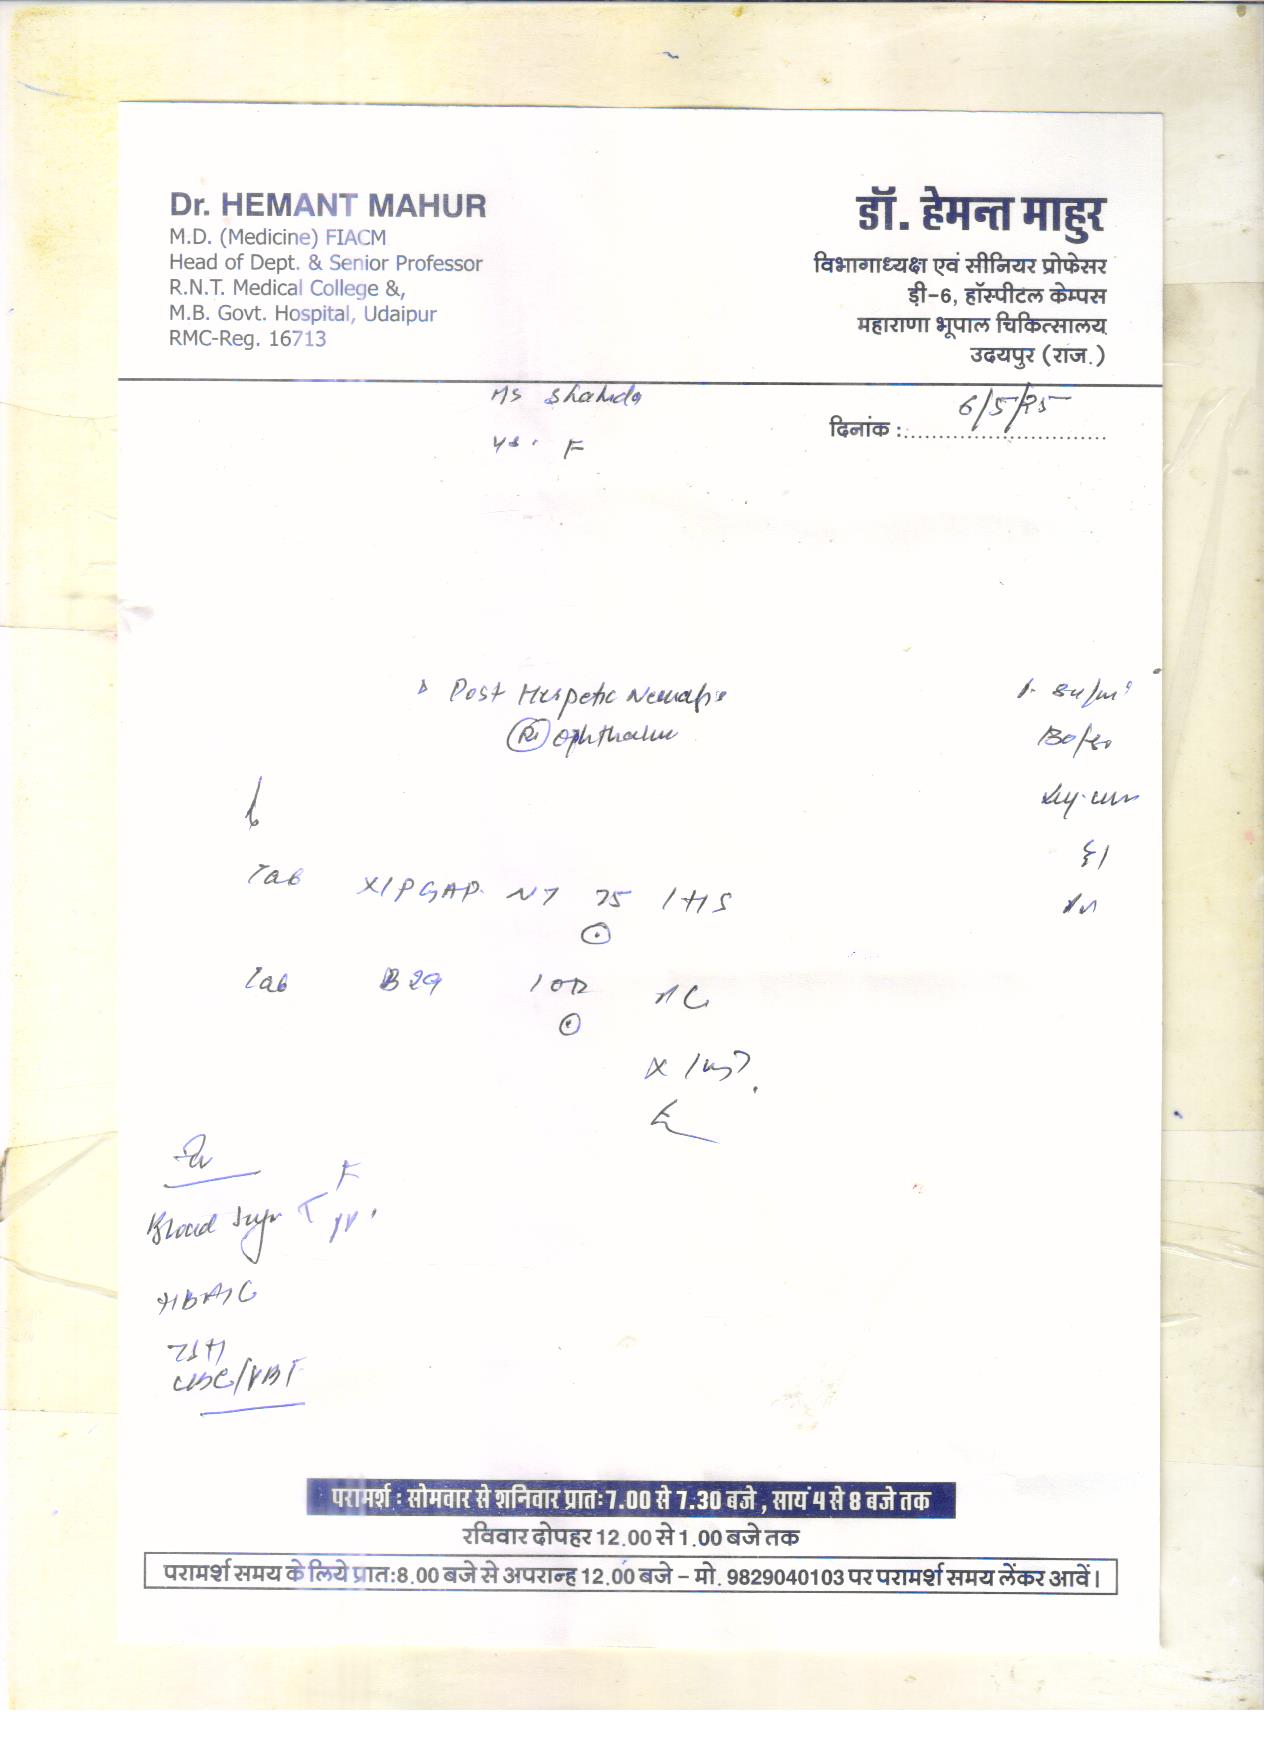 Dr. HEMANT MAHUR
M.D. (Medicine) FIACM
Head of Dept. & Senior Professor
R.N.T. Medical College &,
M.B. Govt. Hospital, Udaipur
RMC-Reg. 16713
डॉ. हेमन्त माहुर
विभागाध्यक्ष एवं सीनियर प्रोफेसर
ड़ी-6, हॉस्पीटल केम्पस
महाराणा भूपाल चिकित्सालय
उदयपुर (राज.)
Ms Shahida
F
दिनांक : 6/5/25
Post Herpetic Neuralgia
Ophthalm
Tab XIPGAP NT 75 1 HS
Tab B29 1 OD AC
Blood Sugar F
PP
HBA1C
TSH
CBC/
परामर्श : सोमवार से शनिवार प्रातः7.00 से 7.30 बजे , सायं 4 से 8 बजे तक
रविवार दोपहर 12.00 से 1.00 बजे तक
परामर्श समय के लिये प्रात:8.00 बजे से अपरान्ह 12.00 बजे – मो. 9829040103 पर परामर्श समय लेंकर आवें।